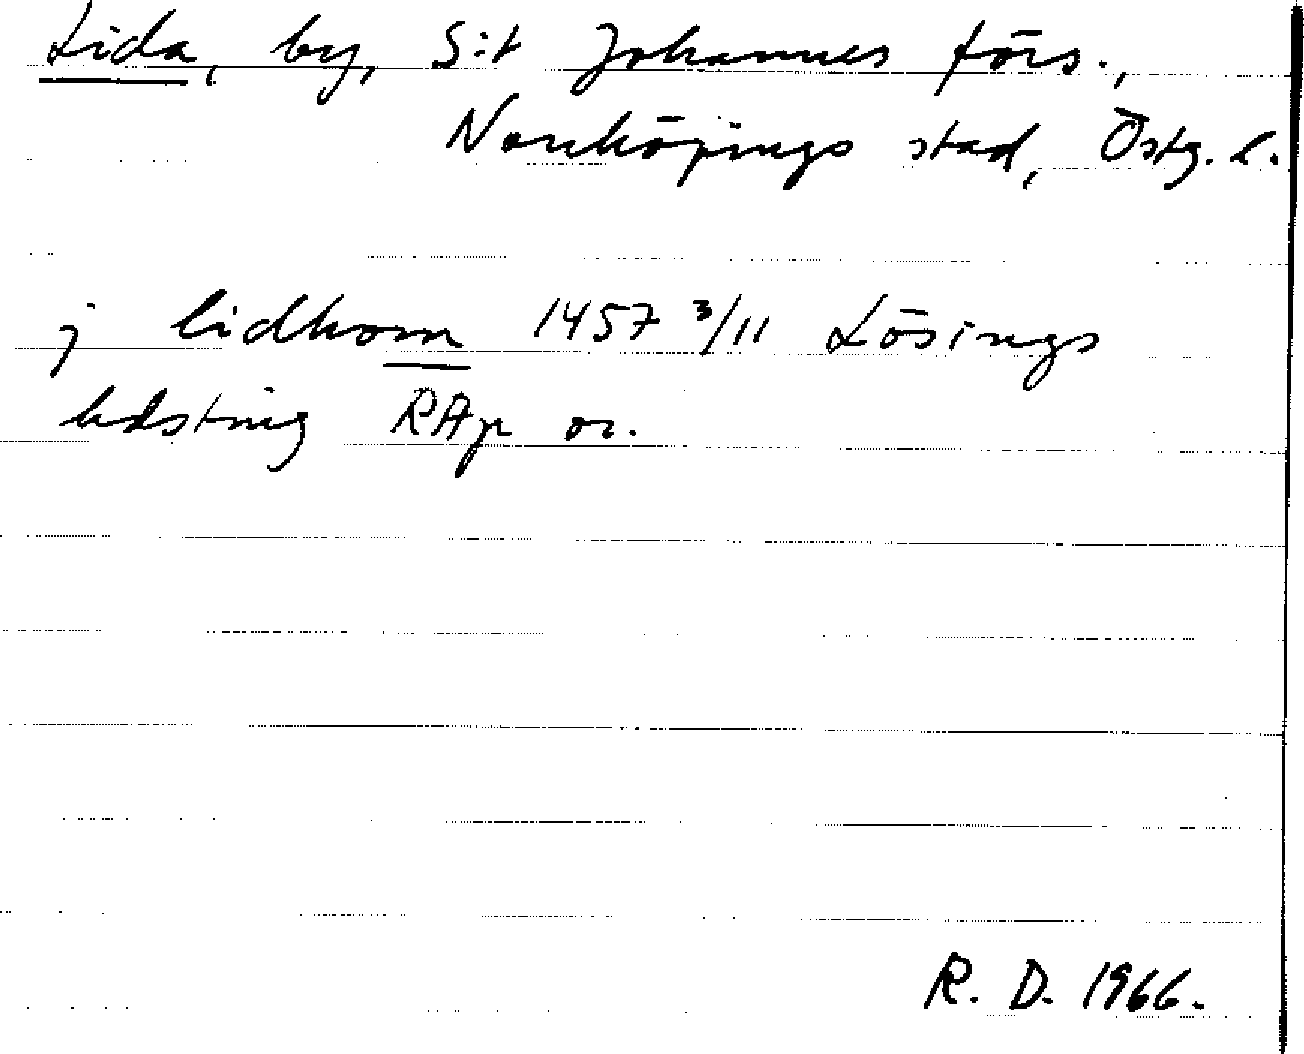 Lida, by, S:t Johannes förs.,
Norrköpings stad, Östg. l.
j lidhom 1457 3/11 Lösings
hdsting RAp or.
R. D. 1966.